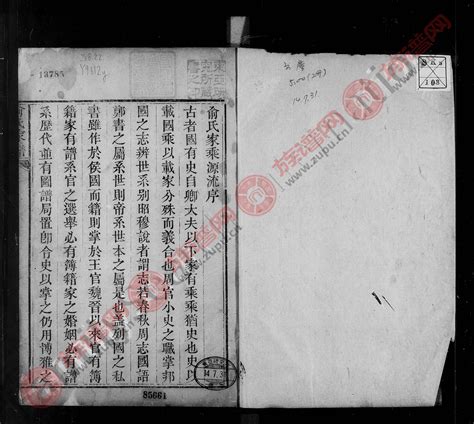 俞氏家乘源流序
古者國有史自卿大夫以下家有乘乘猶史也史以
載國乘以載家分殊而義合也周官小史之職掌邦
國之志辨世系別昭穆說者謂志若春秋周志國語
鄭書之屬系世則帝系世本之屬是也蓋列國之私
書雖作於侯國而籍則掌於王官魏晉以來官有簿
籍家有譜系官之選舉必有簿籍家之婚姻必有譜
系歷代並有圖譜局置郎令史以掌之仍用博雅之
13785
85661
14.7.31
108
族譜网
www.zupu.cn